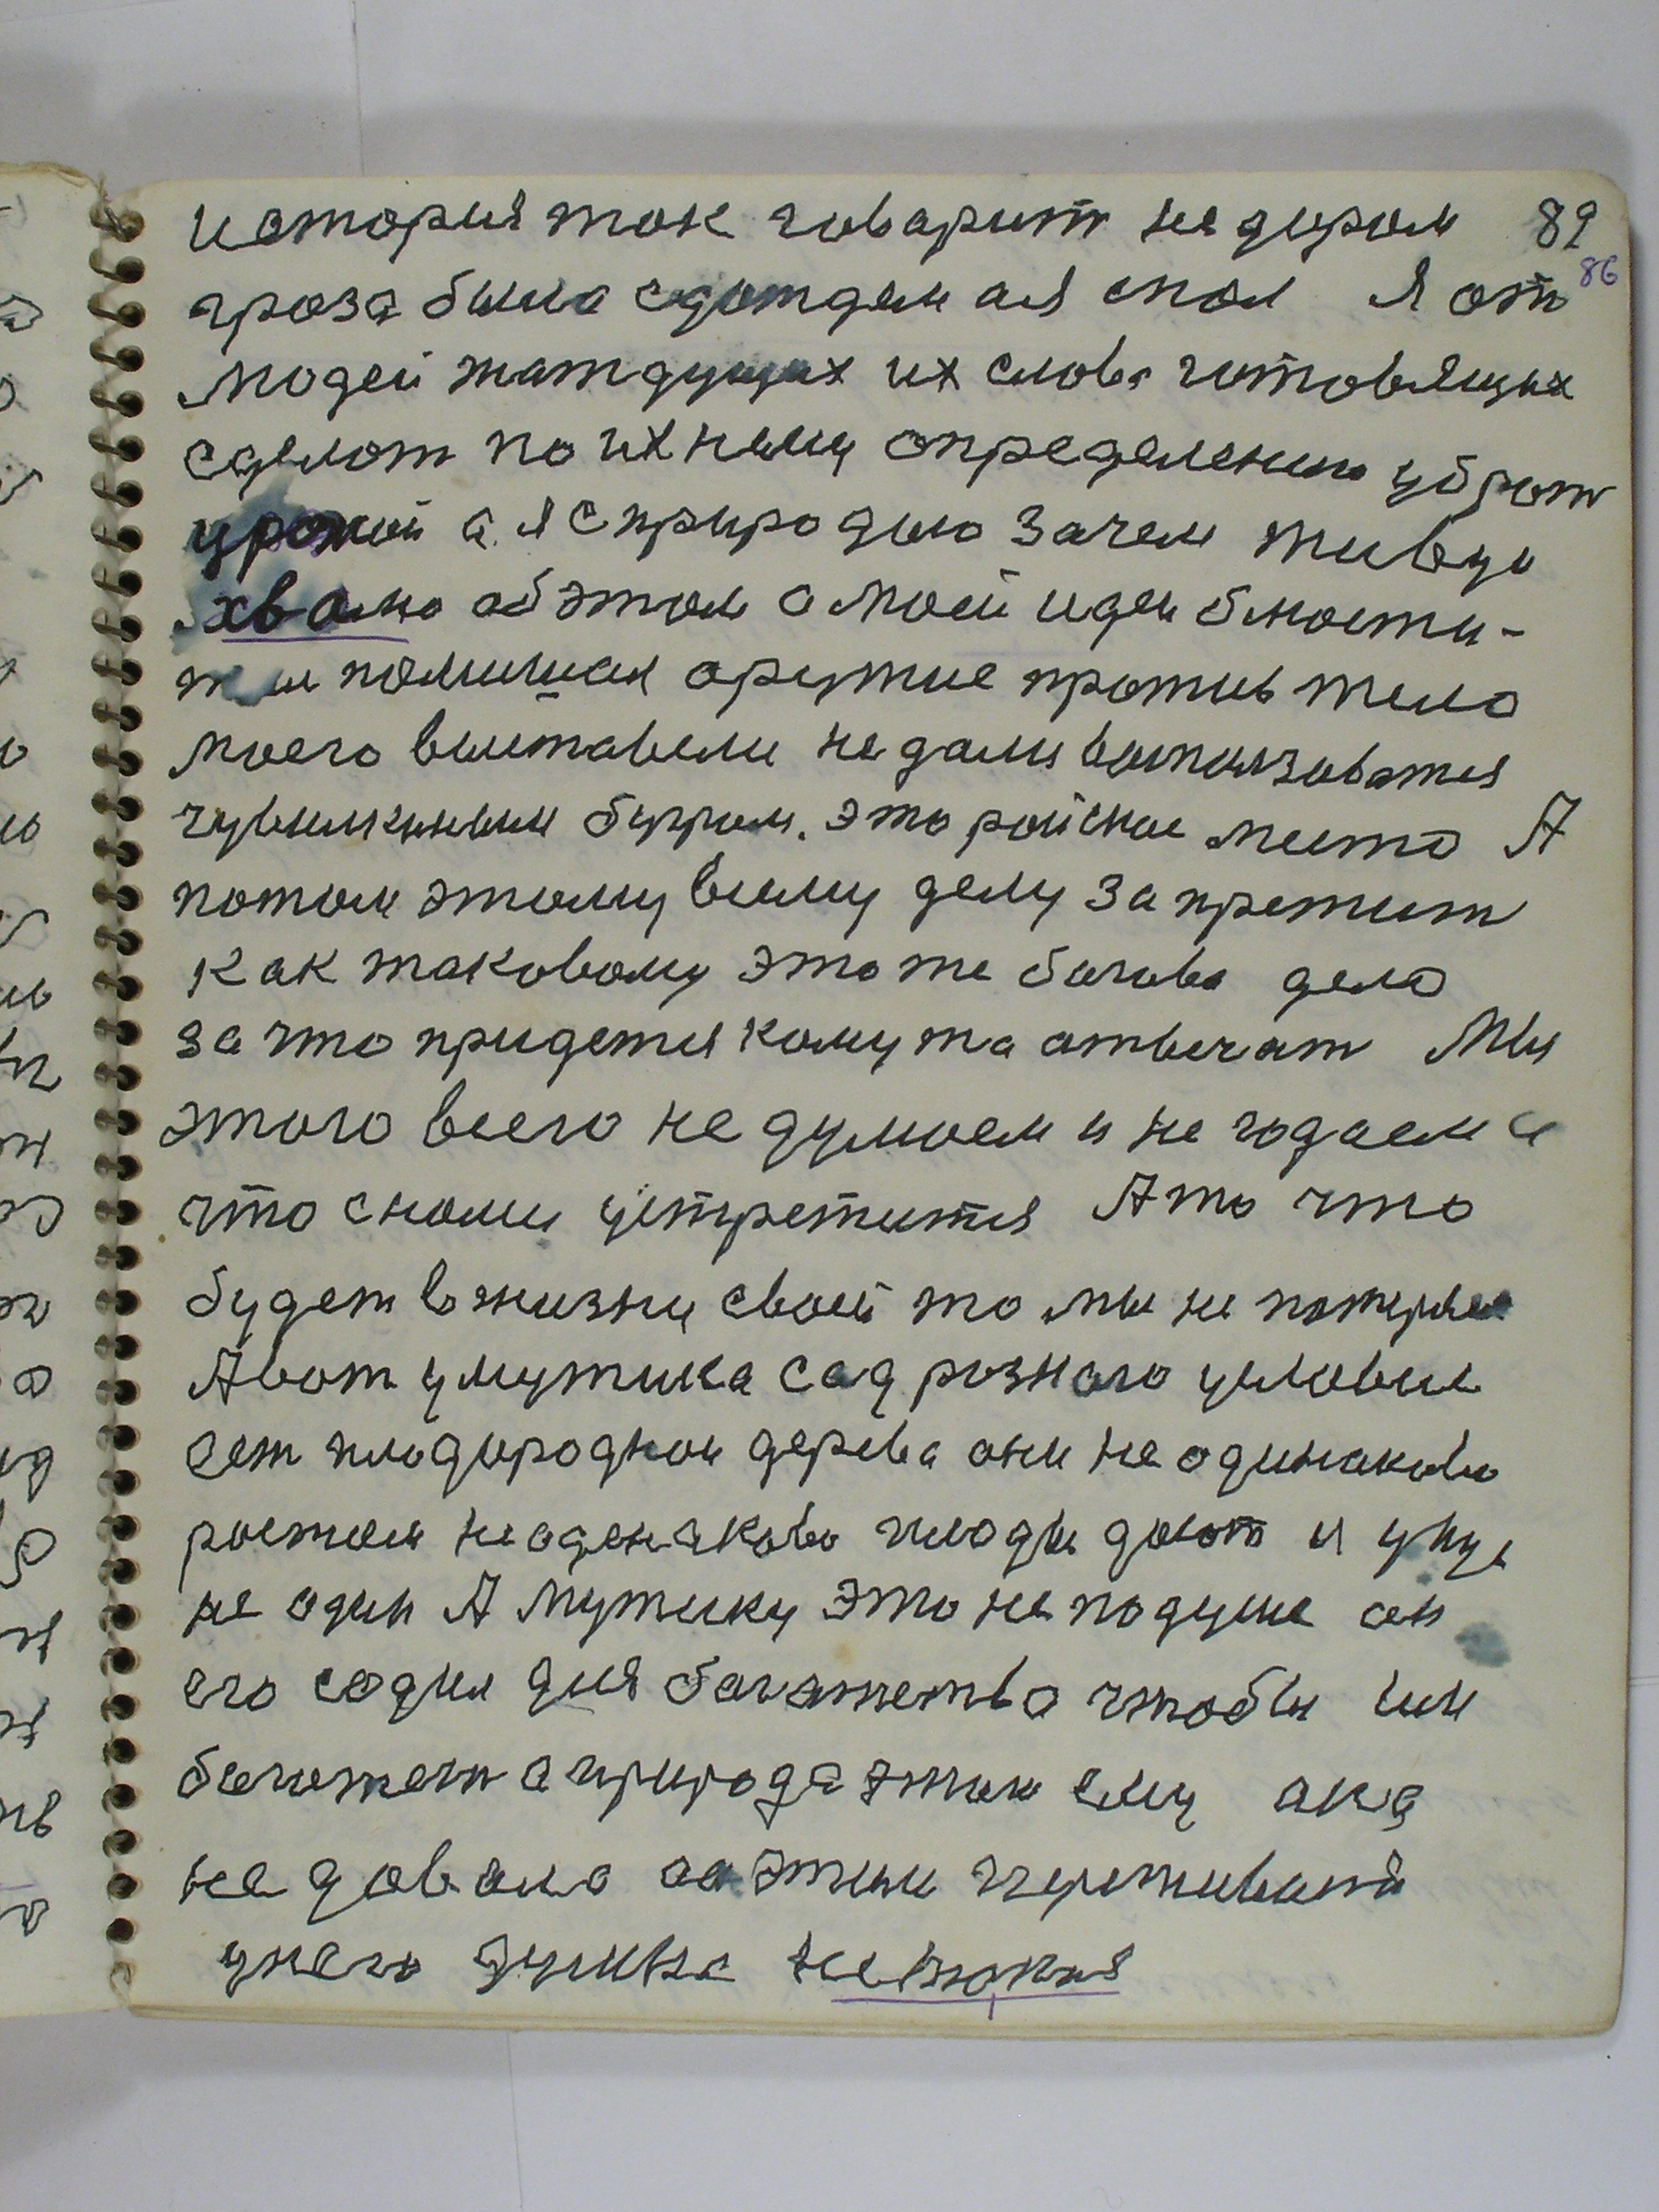 история так говарит не даром 89
гроза была сдождем а я спал Я от 86
людей жаждущих их слова готовящих
сделот по ихнему определению убрат
урожай а я с природаю зачем живу и
хвалю об этом а моей идеи блюсти-
тели помишал оружие против тело
моего выставели не дали воспользоватся
чувилкиным бугром. это райское место А
потом этому всему делу запретит
как таковому это же богова дело
за что придется кому та отвечат Мы
этого всего не думоем и не годаем с
что снами устретится А то что
будет в жизни своей то мы не потеряем
А вот у мужика сад розного условие
ест плодородной дерева они не одинаково
ростом неоденаково плоды дают и укус
не один А мужику это не подуше он
его содил для богатства чтобы им
богатет а природа этим ему ака
не довала он этим переживает
у него душка не такая